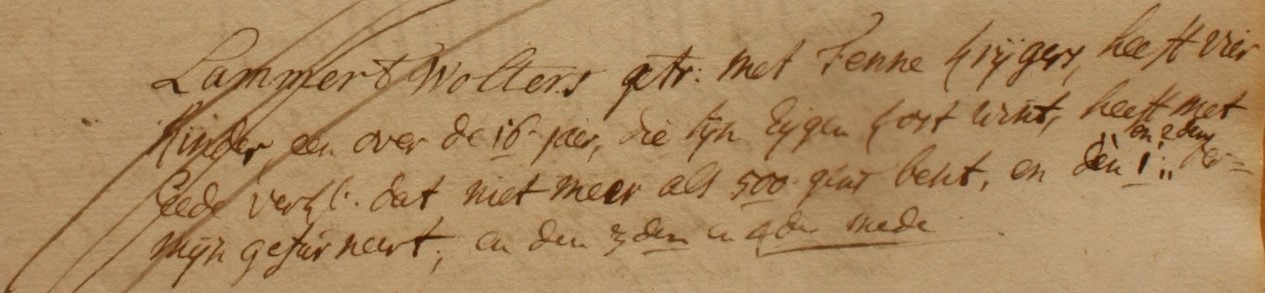 Lammert Wolters getr: met Fenne Krijgers, heeft vier
Kinder een over de 16 jaer, die sijn Eijgen kost wint, heeft met
Eede verkl. dat niet meer als 500 gld besit, en den 1:,, en 2den ter=
mijn gefurneert, en den 3den en 4den mede